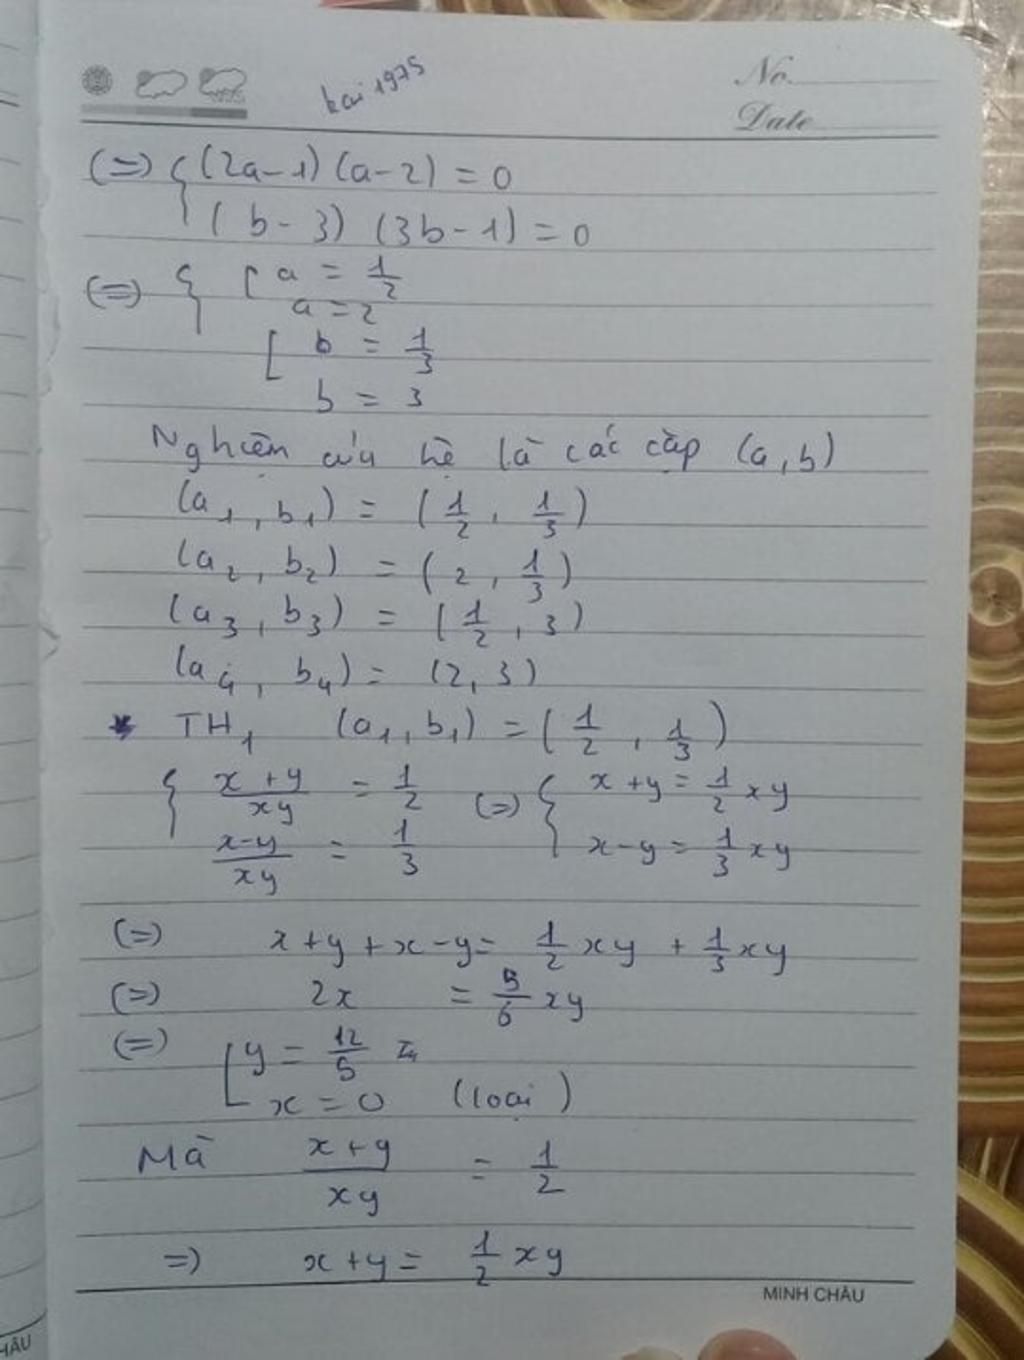 kai1975
No.
Date
(=) { (2a-1) (a-2) = 0
( b-3) (3b-1) = 0
(=) { [ a = 1/2
a = 2
[ b = 1/3
b = 3
Nghiệm của hệ là các cặp (a,b)
(a1, b1) = (1/2, 1/3)
(a2, b2) = (2, 1/3)
(a3, b3) = (1/2, 3)
(a4, b4) = (2, 3)
* TH1 (a1, b1) = (1/2, 1/3)
{ x+y/xy = 1/2 (=) { x+y = 1/2 xy
x-y/xy = 1/3 x-y = 1/3 xy
(=) x+y+x-y = 1/2 xy + 1/3 xy
(=) 2x = 5/6 xy
(=) [ y = 12/5
x = 0 (loại)
Mà x+y/xy = 1/2
=) x+y = 1/2 xy
MINH CHÂU
HÂU